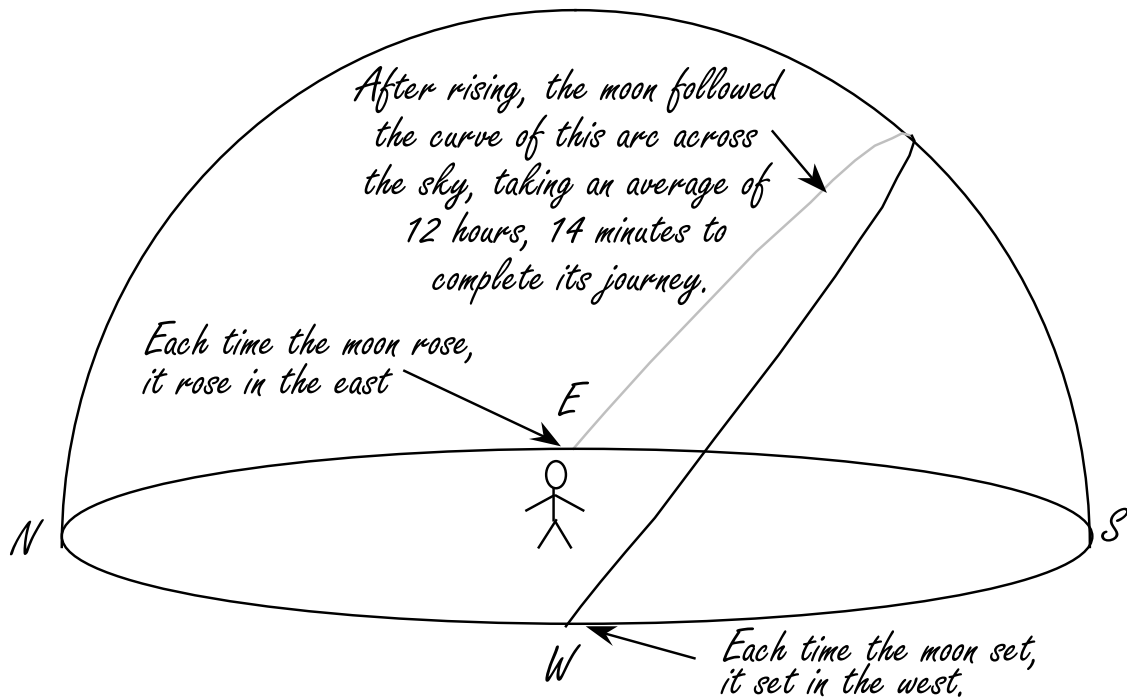 After rising, the moon followed
the curve of this arc across
the sky, taking an average of
12 hours, 14 minutes to
complete its journey.
Each time the moon rose,
it rose in the east
E
N
S
W
Each time the moon set,
it set in the west.